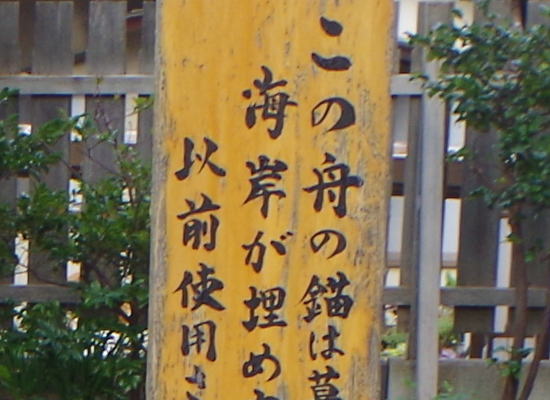 この舟の錨は
海岸が埋め
以前使用さ